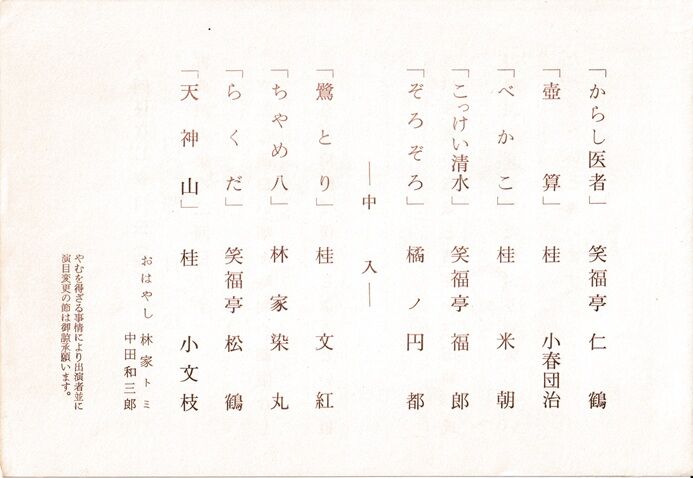 「からし医者」 笑福亭 仁鶴
「壺算」 桂 小春団治
「べかこ」 桂 米朝
「こっけい清水」 笑福亭 福郎
「ぞろぞろ」 橘ノ円都
―中入―
「鷺とり」 桂 文紅
「ちやめ八」 林家染丸
「らくだ」 笑福亭 松鶴
「天神山」 桂 小文枝
おはやし 林家トミ
中田和三郎
やむを得ざる事情により出演者並に
演目変更の節は御諒承願います。